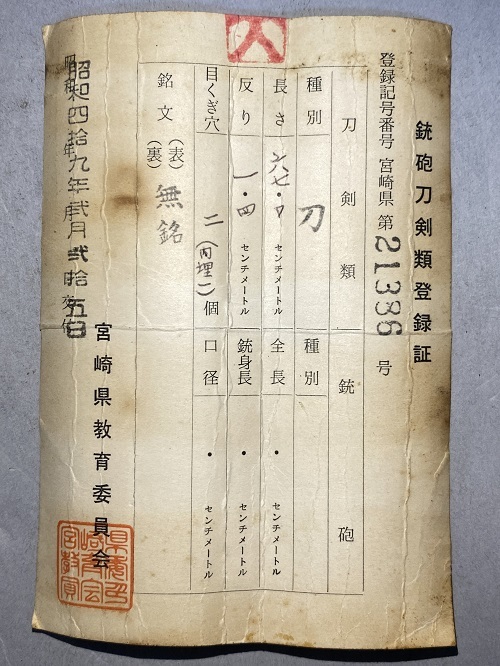 銃砲刀剣類登録証
登録記号番号 宮崎県 第 21386 号
刀剣類 銃砲
種別 刀 種別
長さ 六七・〇 センチメートル 全長 ・ センチメートル
反り 一・四 センチメートル 銃身長 ・ センチメートル
目くぎ穴 二(内埋一)個 口径 ・ センチメートル
銘文 (表) 無銘
(裏)
昭和四拾九年弐月弐拾五日
宮崎県教育委員会